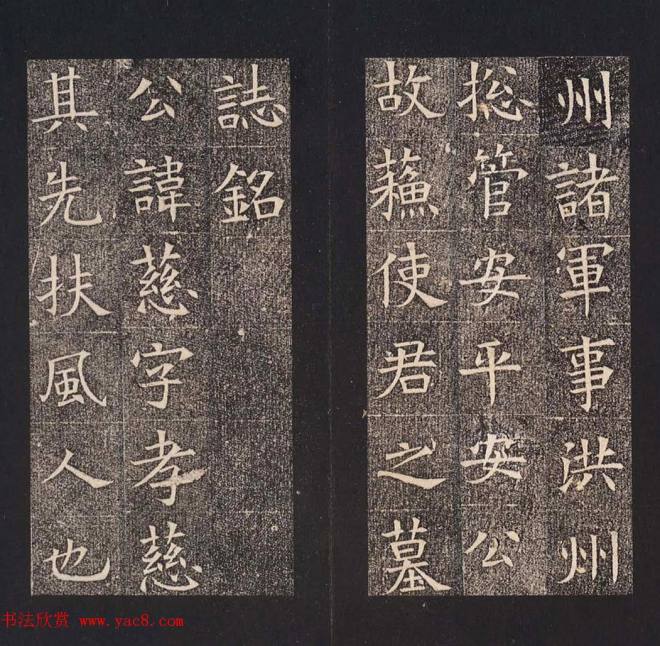 州諸軍事洪州
捴管安平安公
故蘓使君之墓
誌銘
公諱慈字孝慈
其先扶風人也
书法欣赏 www.yac8.com